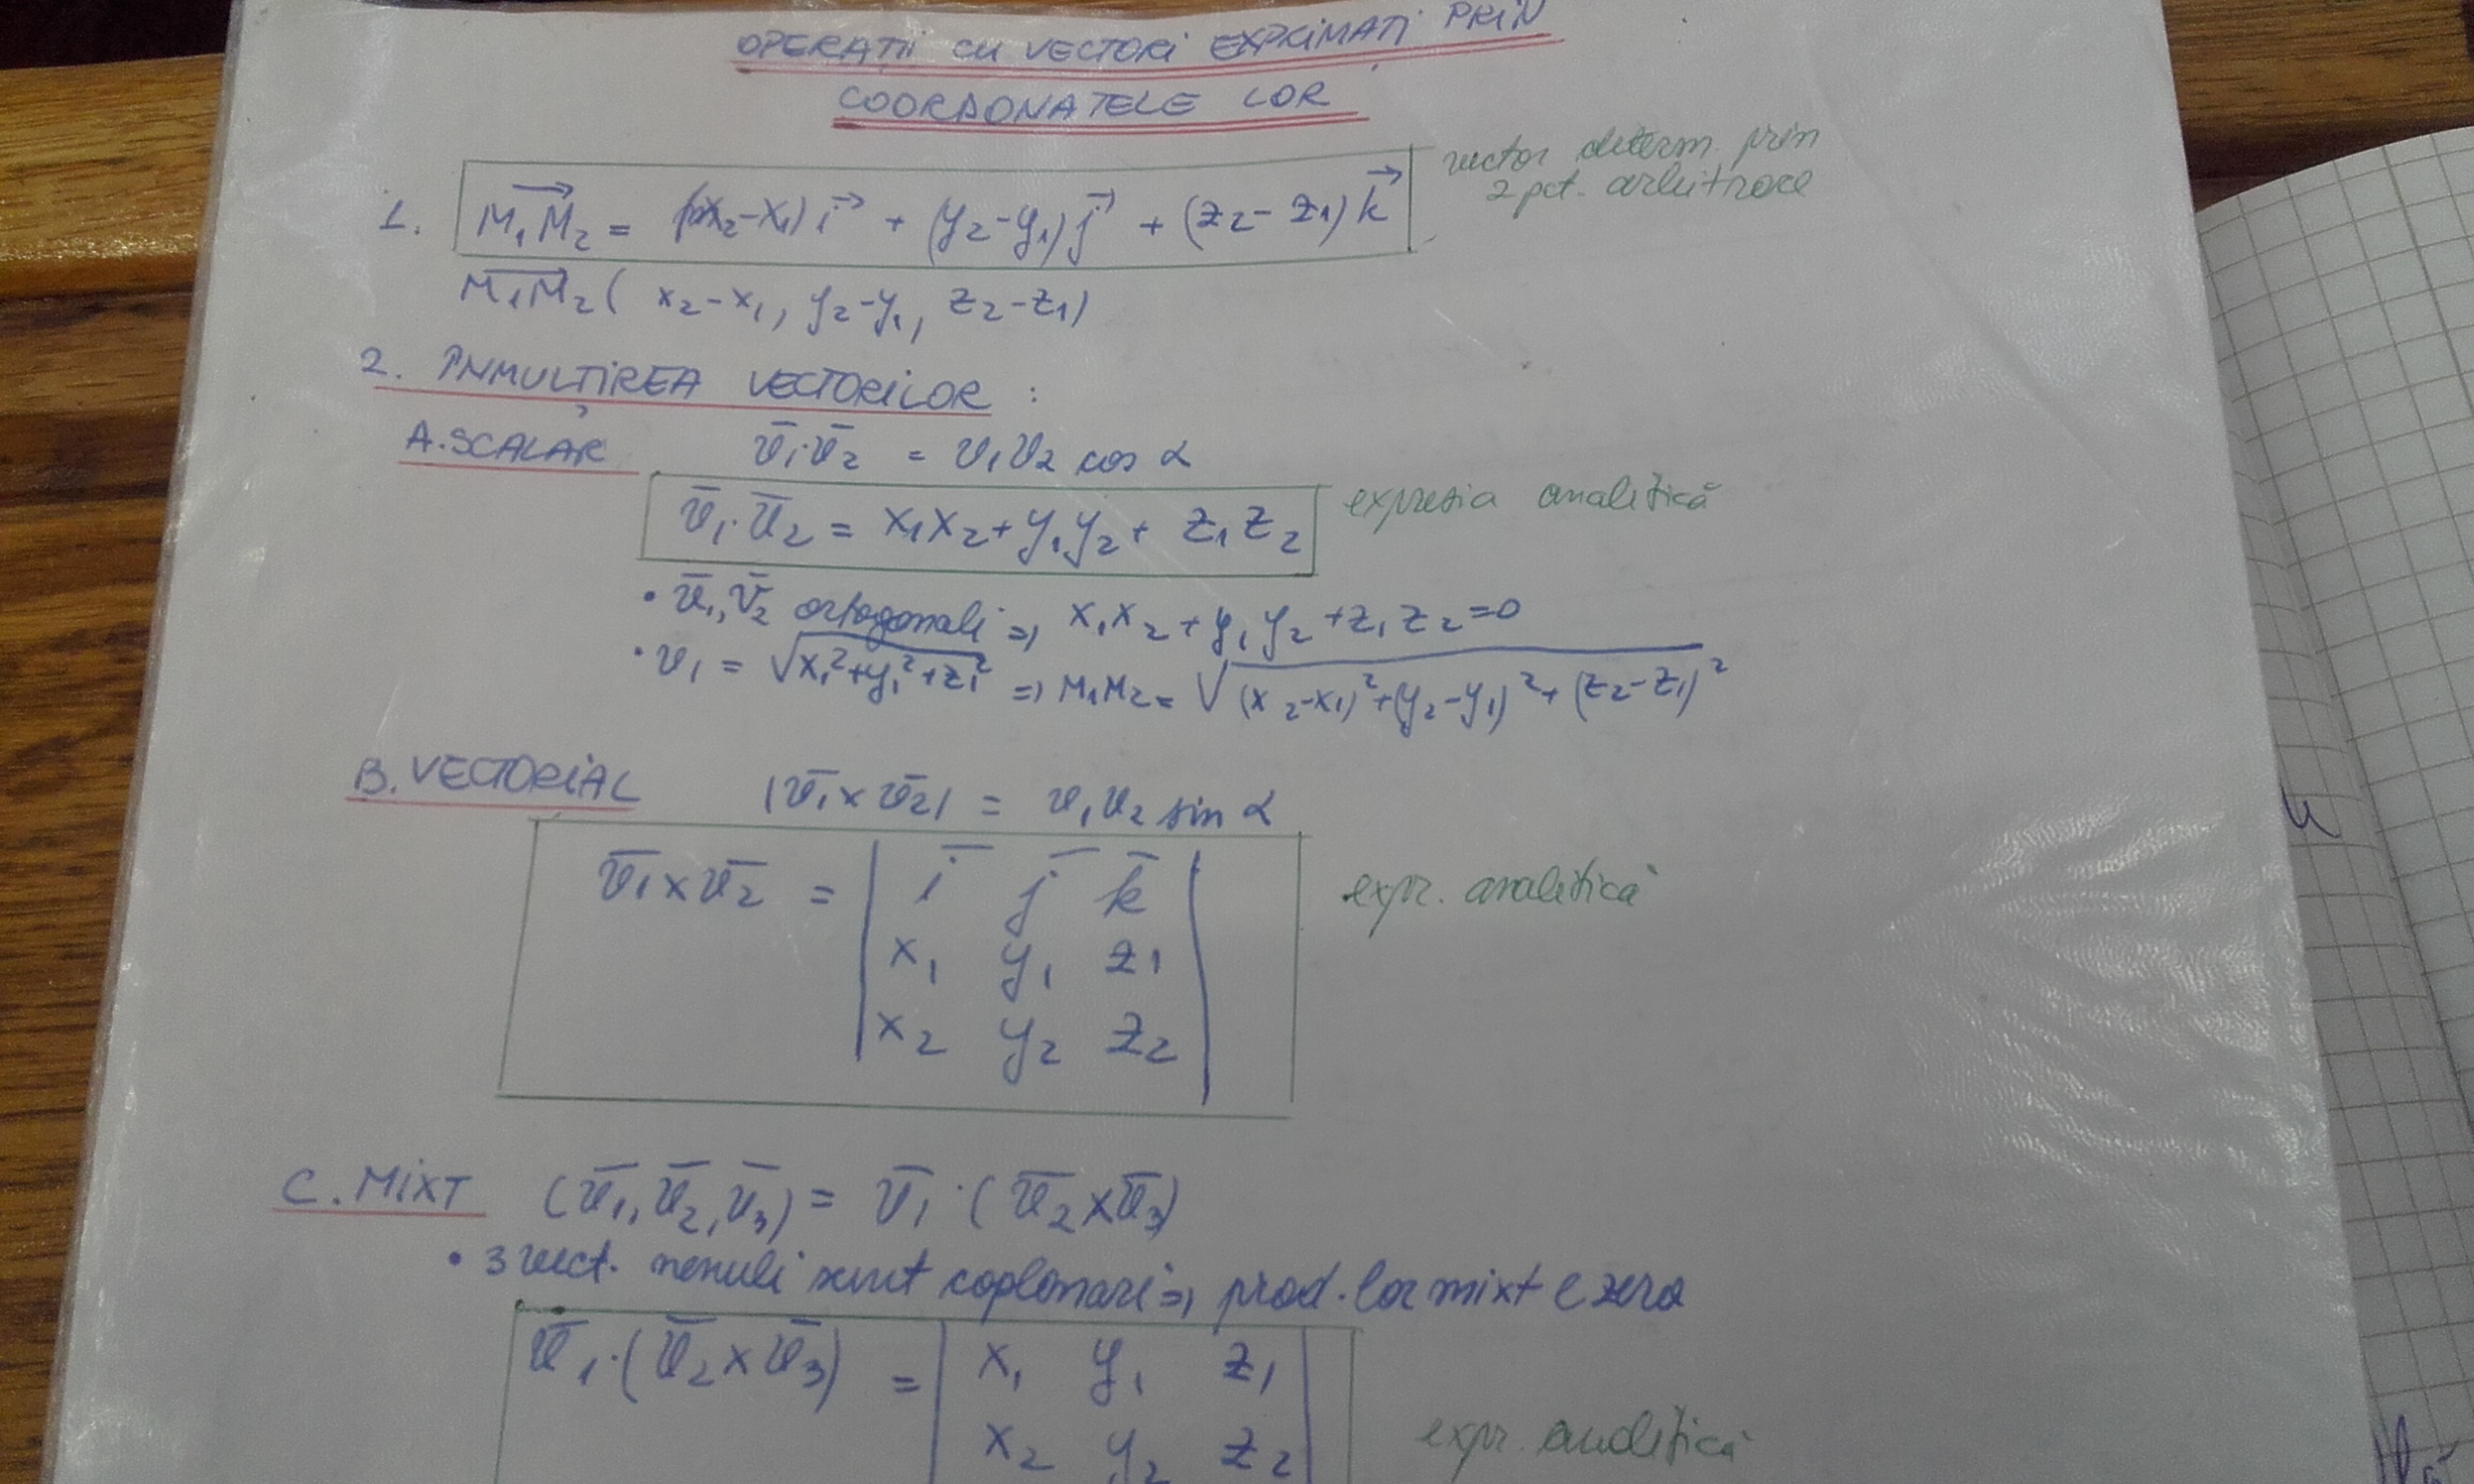 OPERAȚII CU VECTORI EXPRIMAȚI PRIN
COORDONATELE LOR
1. M₁M₂⃗ = (x₂-x₁) i⃗ + (y₂-y₁) j⃗ + (z₂-z₁) k⃗
vector determ. prin
2 pct. arbitrare
M₁M₂⃗ ( x₂-x₁, y₂-y₁, z₂-z₁)
2. ÎNMULȚIREA VECTORILOR :
A. SCALAR v̅₁·v̅₂ = v₁v₂ cos α
v̅₁·v̅₂ = x₁x₂ + y₁y₂ + z₁z₂ expresia analitică
• v̅₁, v̅₂ ortogonali => x₁x₂ + y₁y₂ + z₁z₂ = 0
• v₁ = √(x₁²+y₁²+z₁²) => M₁M₂ = √((x₂-x₁)²+(y₂-y₁)²+(z₂-z₁)²)
B. VECTORIAL |v̅₁ x v̅₂| = v₁v₂ sin α
v̅₁ x v̅₂ = | i̅ j̅ k̅ | expr. analitică
x₁ y₁ z₁
x₂ y₂ z₂
C. MIXT (v̅₁, v̅₂, v̅₃) = v̅₁·(v̅₂ x v̅₃)
• 3 vect. nenuli sunt coplanari => prod. lor mixt e zero
v̅₁·(v̅₂ x v̅₃) = | x₁ y₁ z₁ |
x₂ y₂ z₂ expr. analitică